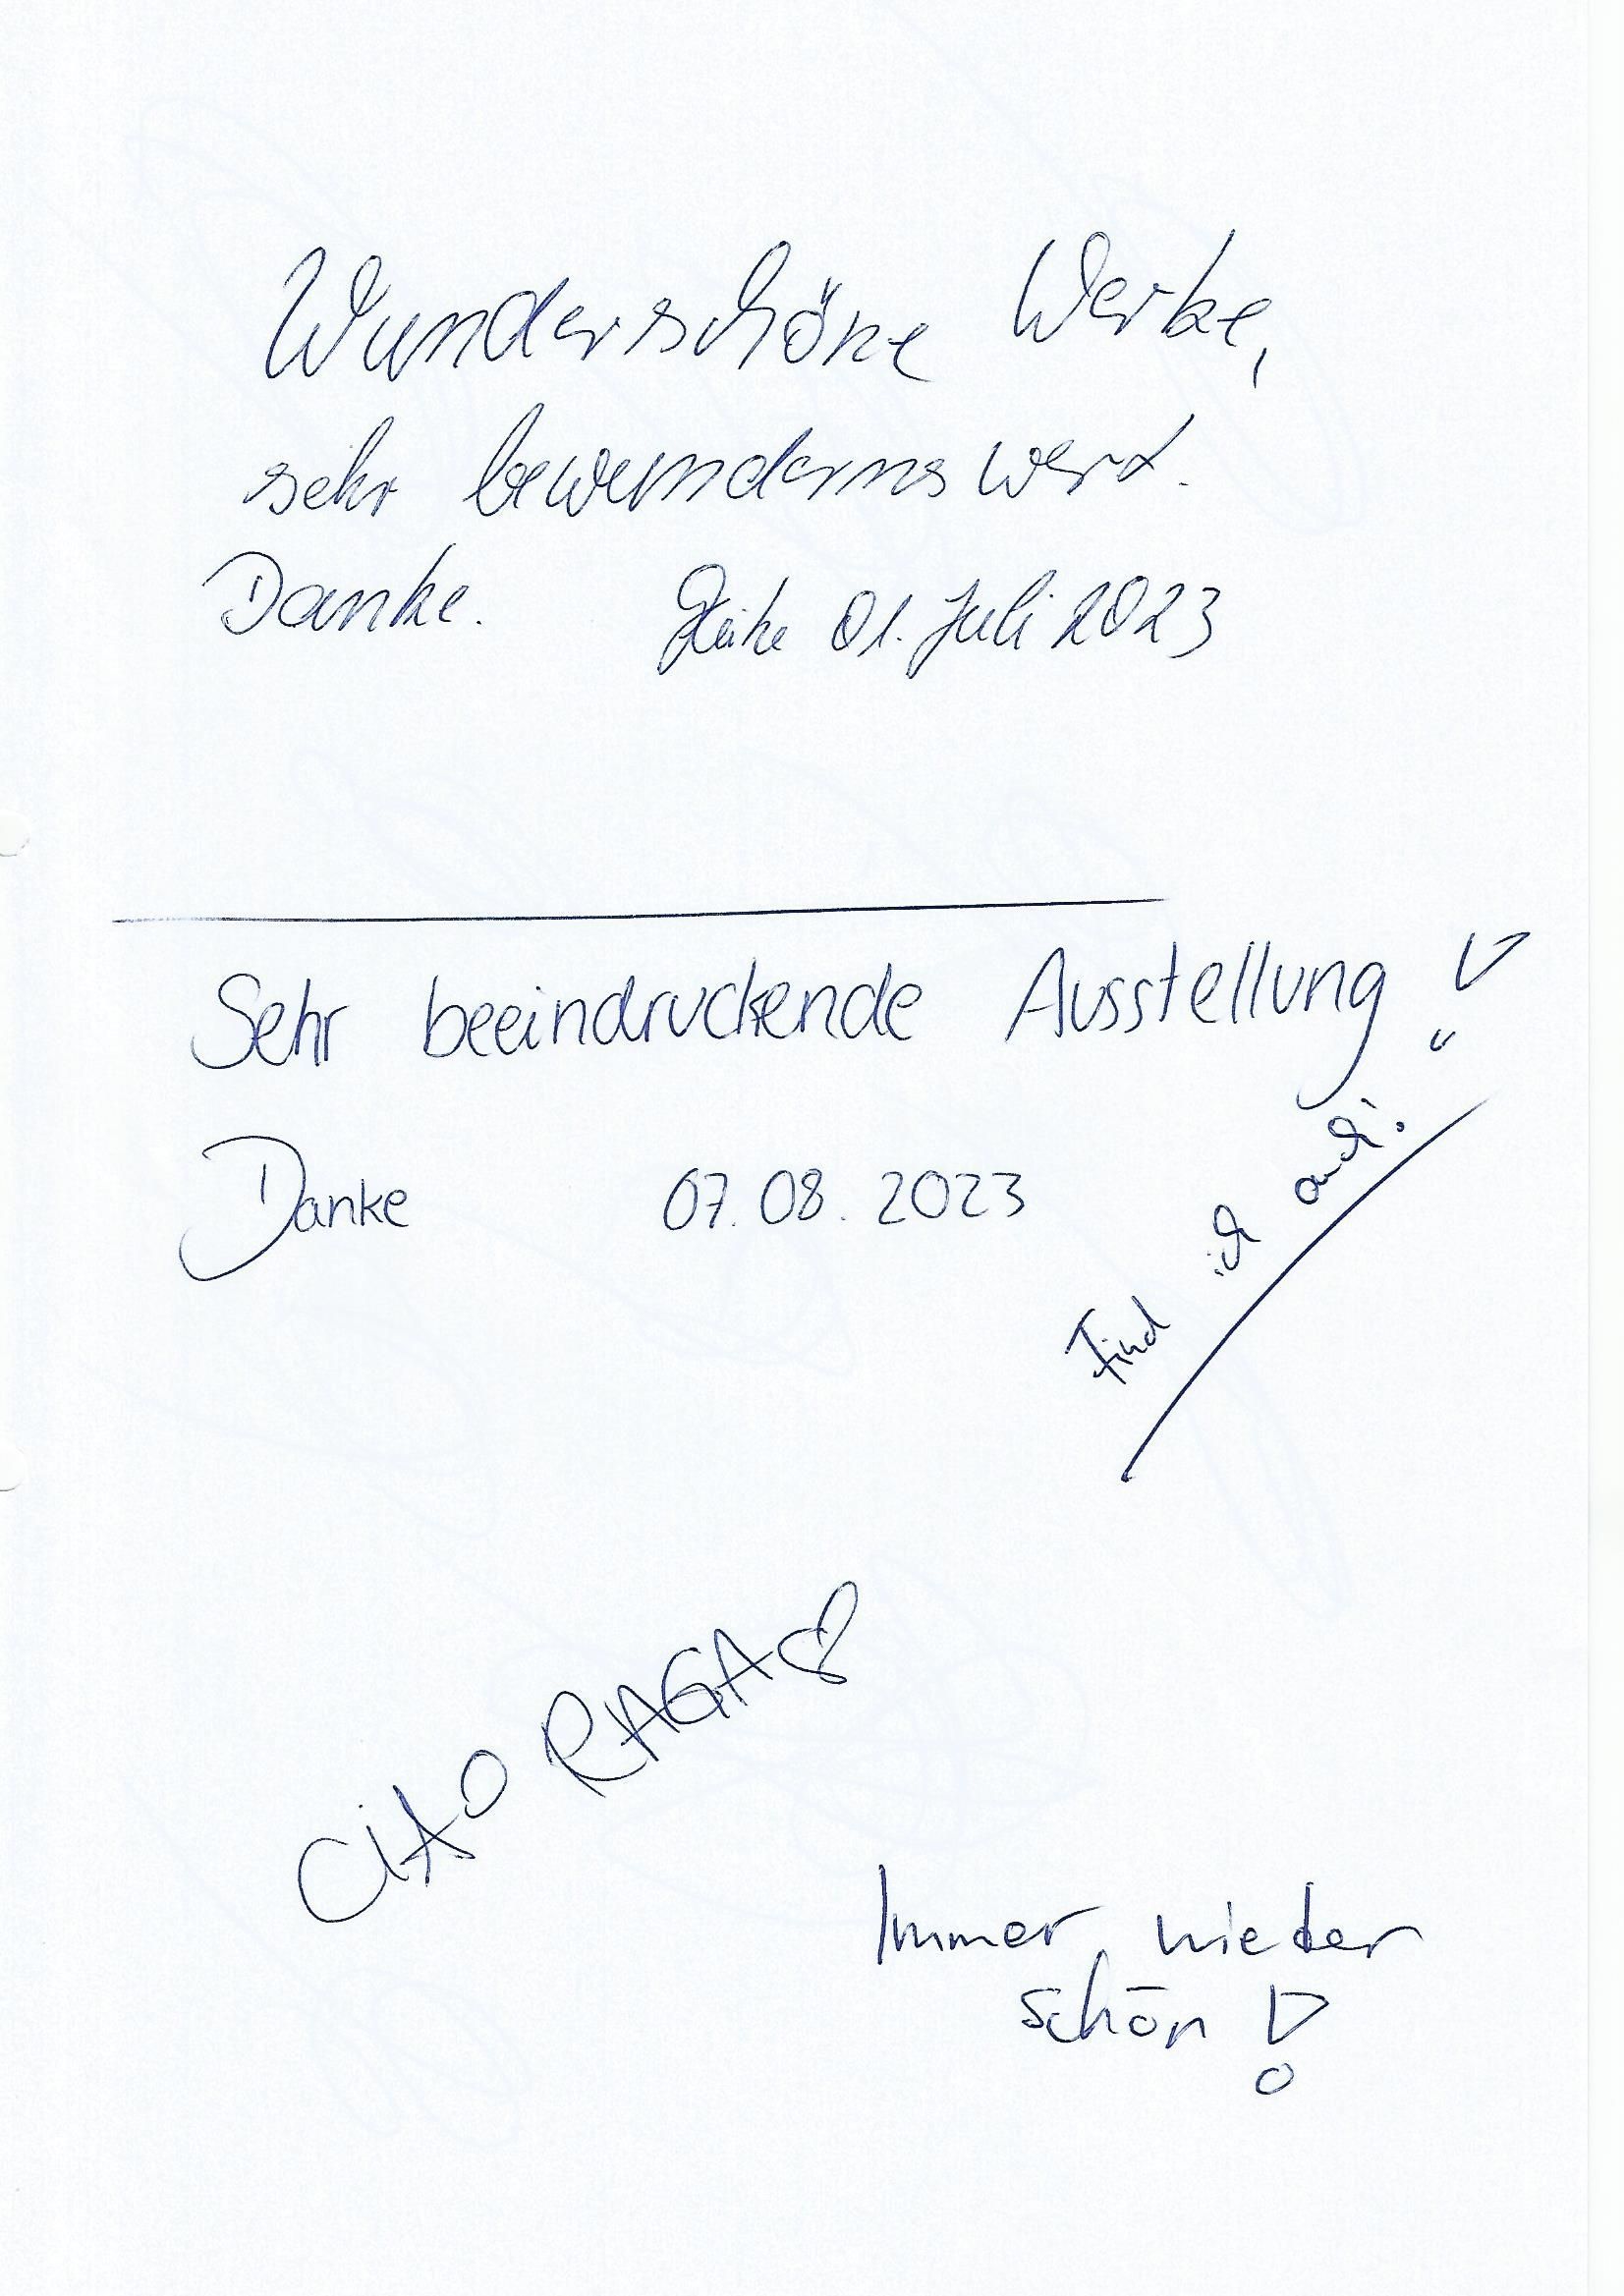 Wunderschöne Werke,
sehr bewundernswert.
Danke. 01. Juli 2023
Sehr beeindruckende Ausstellung!
Danke 07.08.2023
Find ich auch!
CiAO RAGA
Immer wieder
schön!